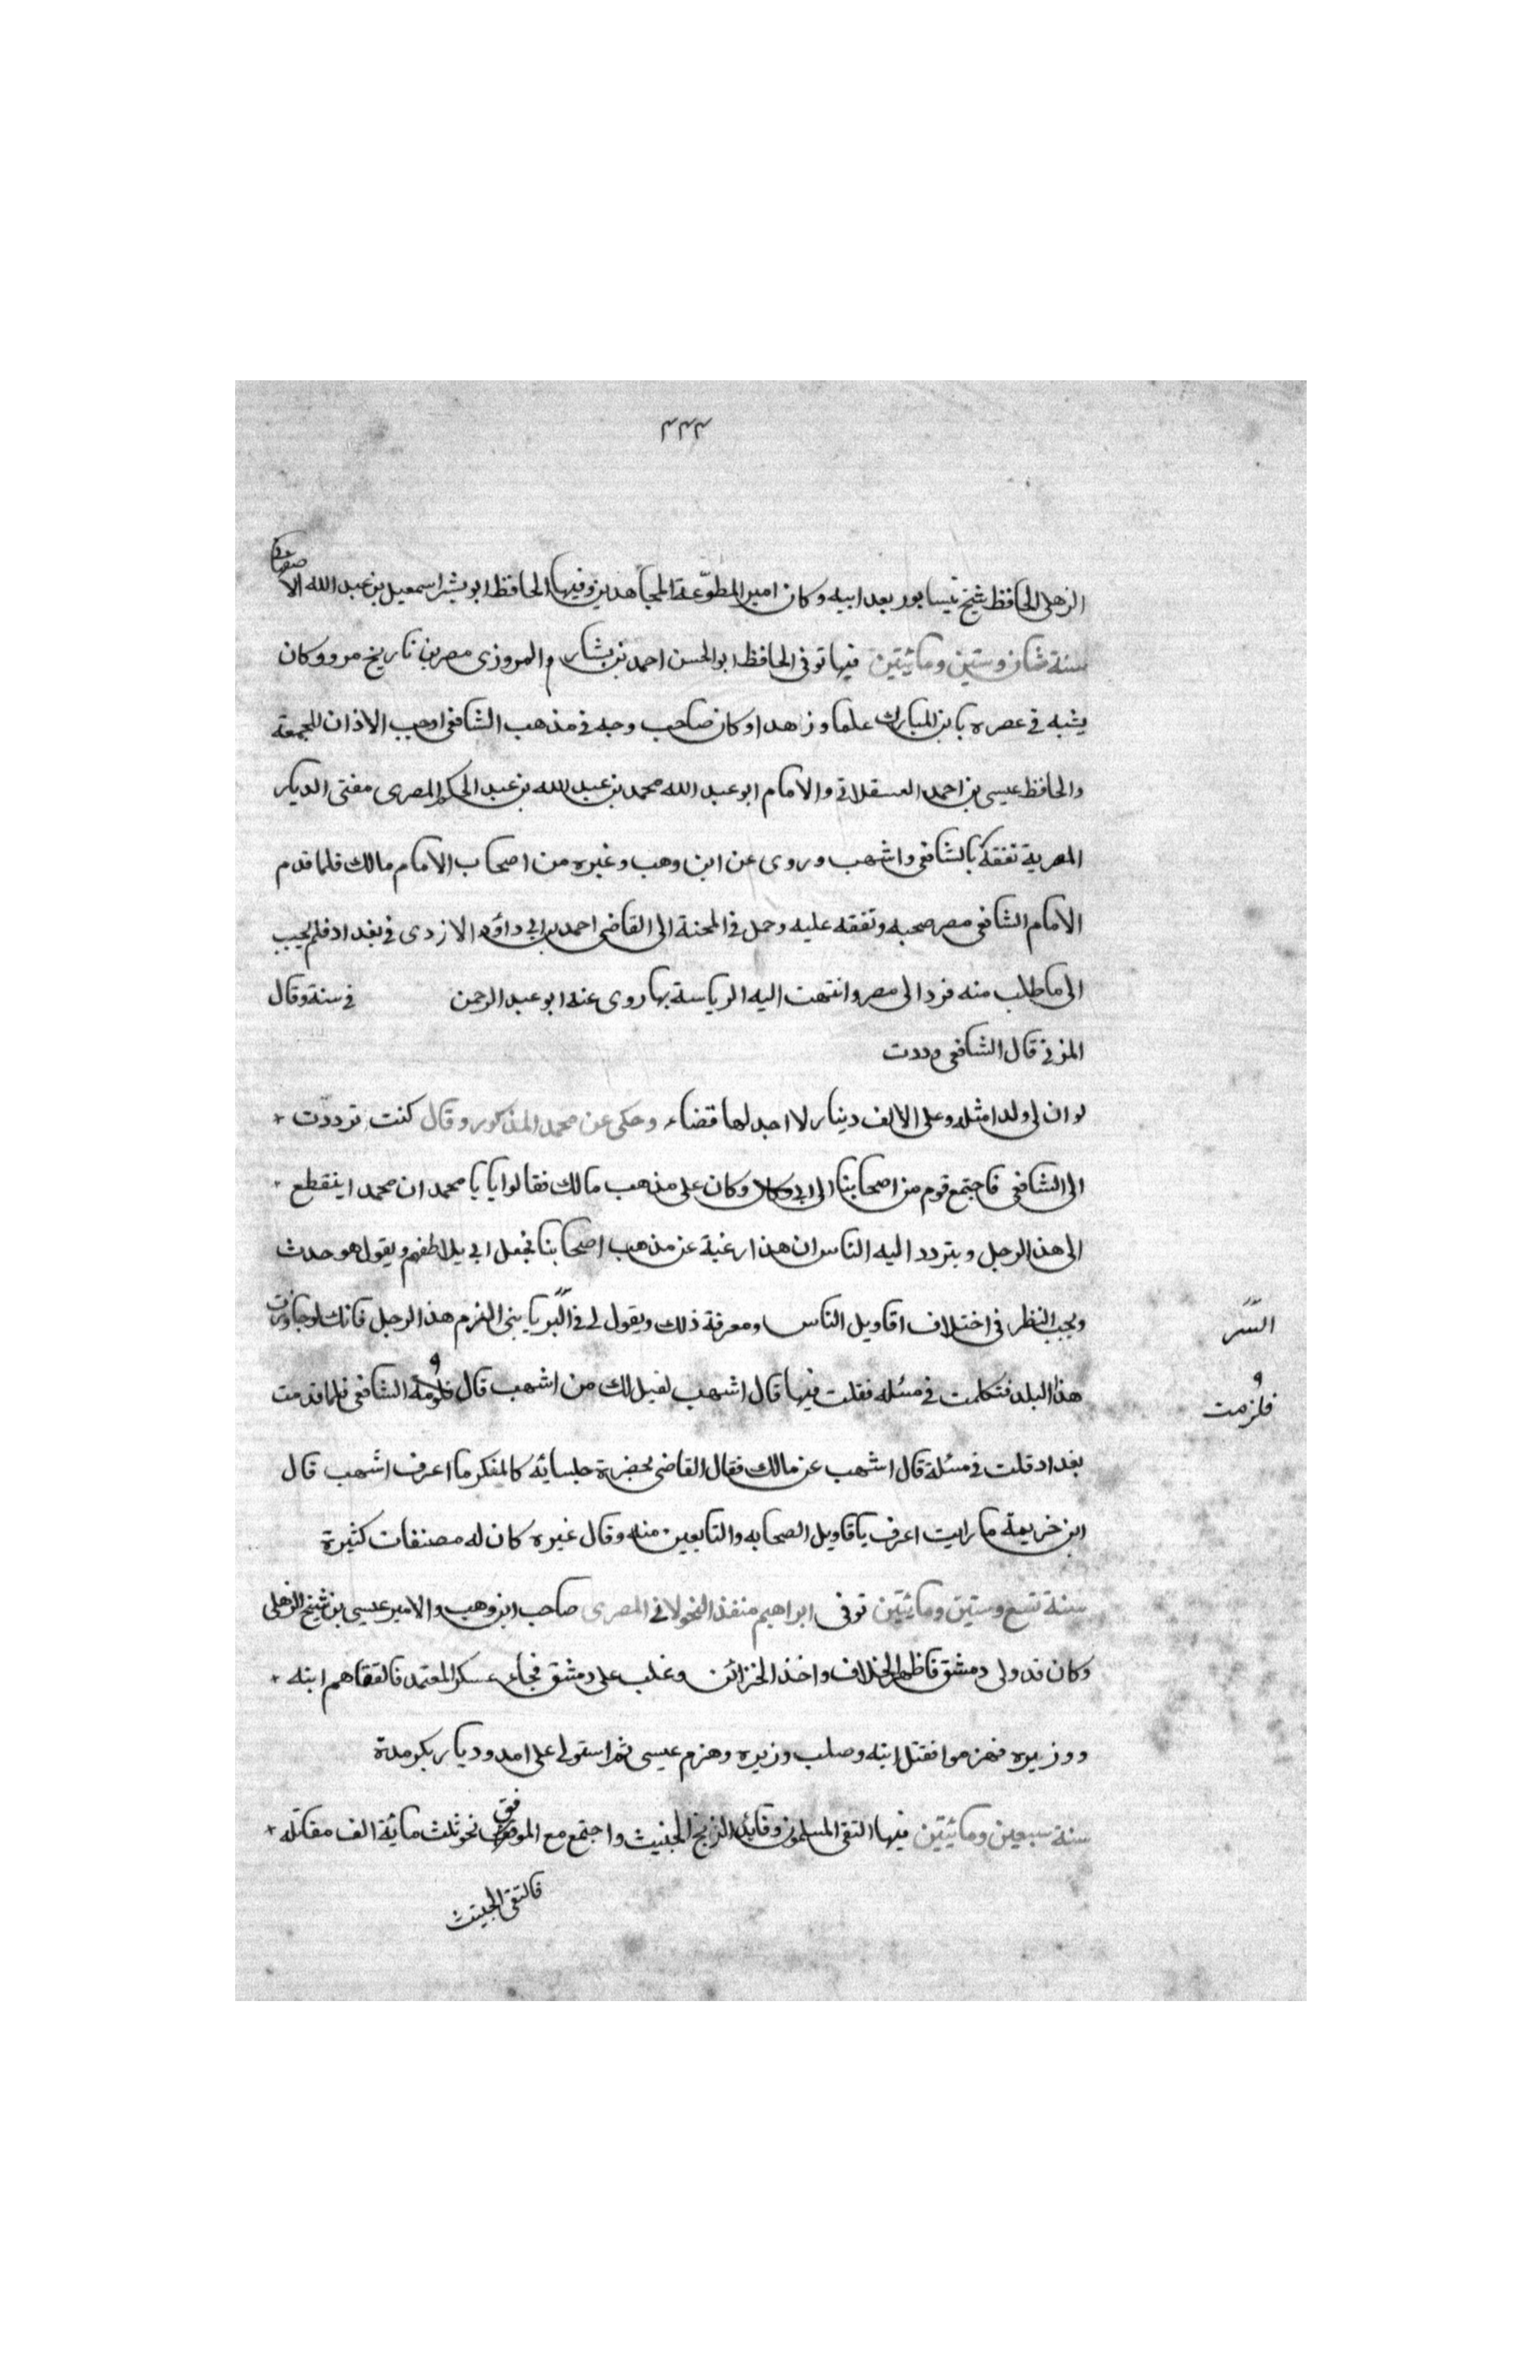 ٣٣٣
الذهلى الحافظ شيخ نيسابور بعد ابيه وكان امير المطوّعة المجاهدين وفيها الحافظ ابو بشر اسمعيل بن عبد الله الاصفهانى
سنة ثمان وستين ومائيتين فيها توفى الحافظ ابو الحسن احمد بن بشار والمروزى مصر بن تاريخ مرو وكان
يشبه فى عصره بابن المبارك علما وزهدا وكان صاحب وجه فى مذهب الشافعى اوجب الاذان للجمعة
والحافظ عيسى بن احمد العسقلانى والامام ابو عبد الله محمد بن عبد الله بن عبد الحكم المصرى مفتى الديار
المصرية تفقه بالشافعى واشهب وروى عن ابن وهب وغيره من اصحاب الامام مالك فلما قدم
الامام الشافعى مصر صحبه وتفقه عليه وحمل فى المحنة الى القاضى احمد بن ابى داؤد الازدى فى بغداد فلم يجيب
الى ما طلب منه فرد الى مصر وانتهت اليه الرياسة بها روى عنه ابو عبد الرحمن فى سنة وقال
المزنى قال الشافعى وددت
لو ان لى ولدا مثله وعلى الالف دينار لا اجد لها قضاء وحكى عن محمد المذكور وقال كنت تردّدت
الى الشافعى فاجتمع قوم من اصحابنا الى ابى وكان وكان على مذهب مالك فقالوا يا يا محمد ان محمد اينقطع
الى هذا الرجل ويتردد اليه الناس ان هذا رغبة عن مذهب اصحابنا فجعل ابى يلاطفهم ويقول هو حدث
ويحب النظر فى اختلاف اقاويل الناس ومعرفة ذلك ويقول لى فى البر يا بنى الغزم هذا الرجل فانك لو جاوزت
السّر
هذا البلد فتكلمت فى مسئله فقلت فيها قال اشهب لقيل لك من اشهب قال فلزمه الشافعى فلما قدمت
فلزمت
بغداد قلت فى مسئلة قال اشهب عن مالك فقال القاضى بحضرة جلسائه كالمفكر ما اعرف اشهب قال
ابن خزيمة ما رايت اعرف باقاويل الصحابه والتابعين منه وقال غيره كان له مصنفات كثيرة
سنة تسع وستين ومائيتين توفى ابراهيم منقذ الخولانى المصرى صاحب ابن وهب والامير عيسى بن شيخ الذهلى
وكان قد ولى دمشق فاظهر الخلاف واخذ الخزائن وغلب على دمشق فجاء عسكر المعتمد فالتقاهم ابنه
ووزيره فهزموا فقتل ابنه وصلب وزيره وهزم عيسى ثم استولى على امد وديار بكر مدة
سنة سبعين ومائيتين فيها التقى المسلمون وقايد الزنج الخبيث واجتمع مع الموفق نحو ثلث مائة الف مقاتله
فالتقى الخبيث